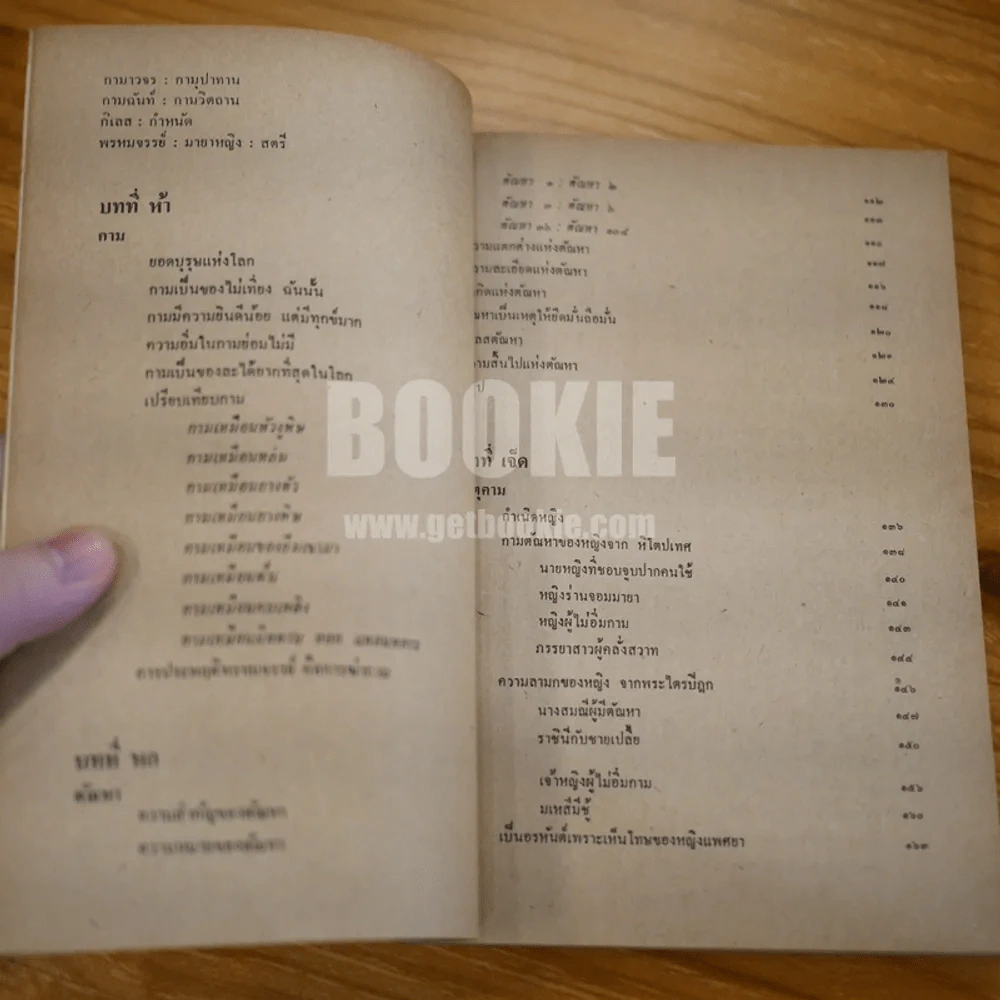 กามาวจร : กามุปาทาน
กามฉันท์ : กามวิตถาน
กิเลส : กำหนัด
พรหมจรรย์ : มายาหญิง : สตรี
บทที่ ห้า
กาม
ยอดบุรุษแห่งโลก
กามเป็นของไม่เที่ยง ฉันนั้น
กามมีความยินดีน้อย แต่มีทุกข์มาก
ความอิ่มในกามย่อมไม่มี
กามเป็นของละได้ยากที่สุดในโลก
เปรียบเทียบกาม
กามเหมือนหัวงูพิษ
กามเหมือนหล่ม
กามเหมือนยางตัว
กามเหมือน
กามเหมือนของยืมเขามา
กามเหมือน
กามเหมือน
บทที่ หก
ตัณหา
ความสำคัญของตัณหา
ความหมายของตัณหา
ตัณหา ๑ : ตัณหา ๒
๑๑๒
ตัณหา ๓ : ตัณหา ๖
๑๑๓
ตัณหา ๓๖ : ตัณหา ๑๐๘
๑๑๐
วามแตกต่างแห่งตัณหา
๑๑๗
วามละเอียดแห่งตัณหา
๑๑๖
กิดแห่งตัณหา
๑๑๘
ณหาเป็นเหตุให้ยึดมั่นถือมั่น
๑๒๐
ลสตัณหา
๑๒๑
ามสิ้นไปแห่งตัณหา
๑๒๔
ป
๑๓๐
BOOKIE
www.getbookie.com
ที่ เจ็ด
ตุคาม
กำเนิดหญิง ๑๓๖
กามตัณหาของหญิงจาก หิโตปเทศ ๑๓๘
นายหญิงที่ชอบจูบปากคนใช้ ๑๔๐
หญิงร่านจอมมายา ๑๔๑
หญิงผู้ไม่อิ่มกาม ๑๔๓
ภรรยาสาวผู้คลั่งสวาท ๑๔๔
ความลามกของหญิง จากพระไตรปิฎก ๑๔๖
นางสมณีผู้มีตัณหา ๑๔๗
ราชินีกับชายเปลี้ย ๑๕๐
เจ้าหญิงผู้ไม่อิ่มกาม ๑๕๖
มเหสีมีชู้ ๑๖๐
เป็นอรหันต์เพราะเห็นโทษของหญิงแพศยา ๑๖๓